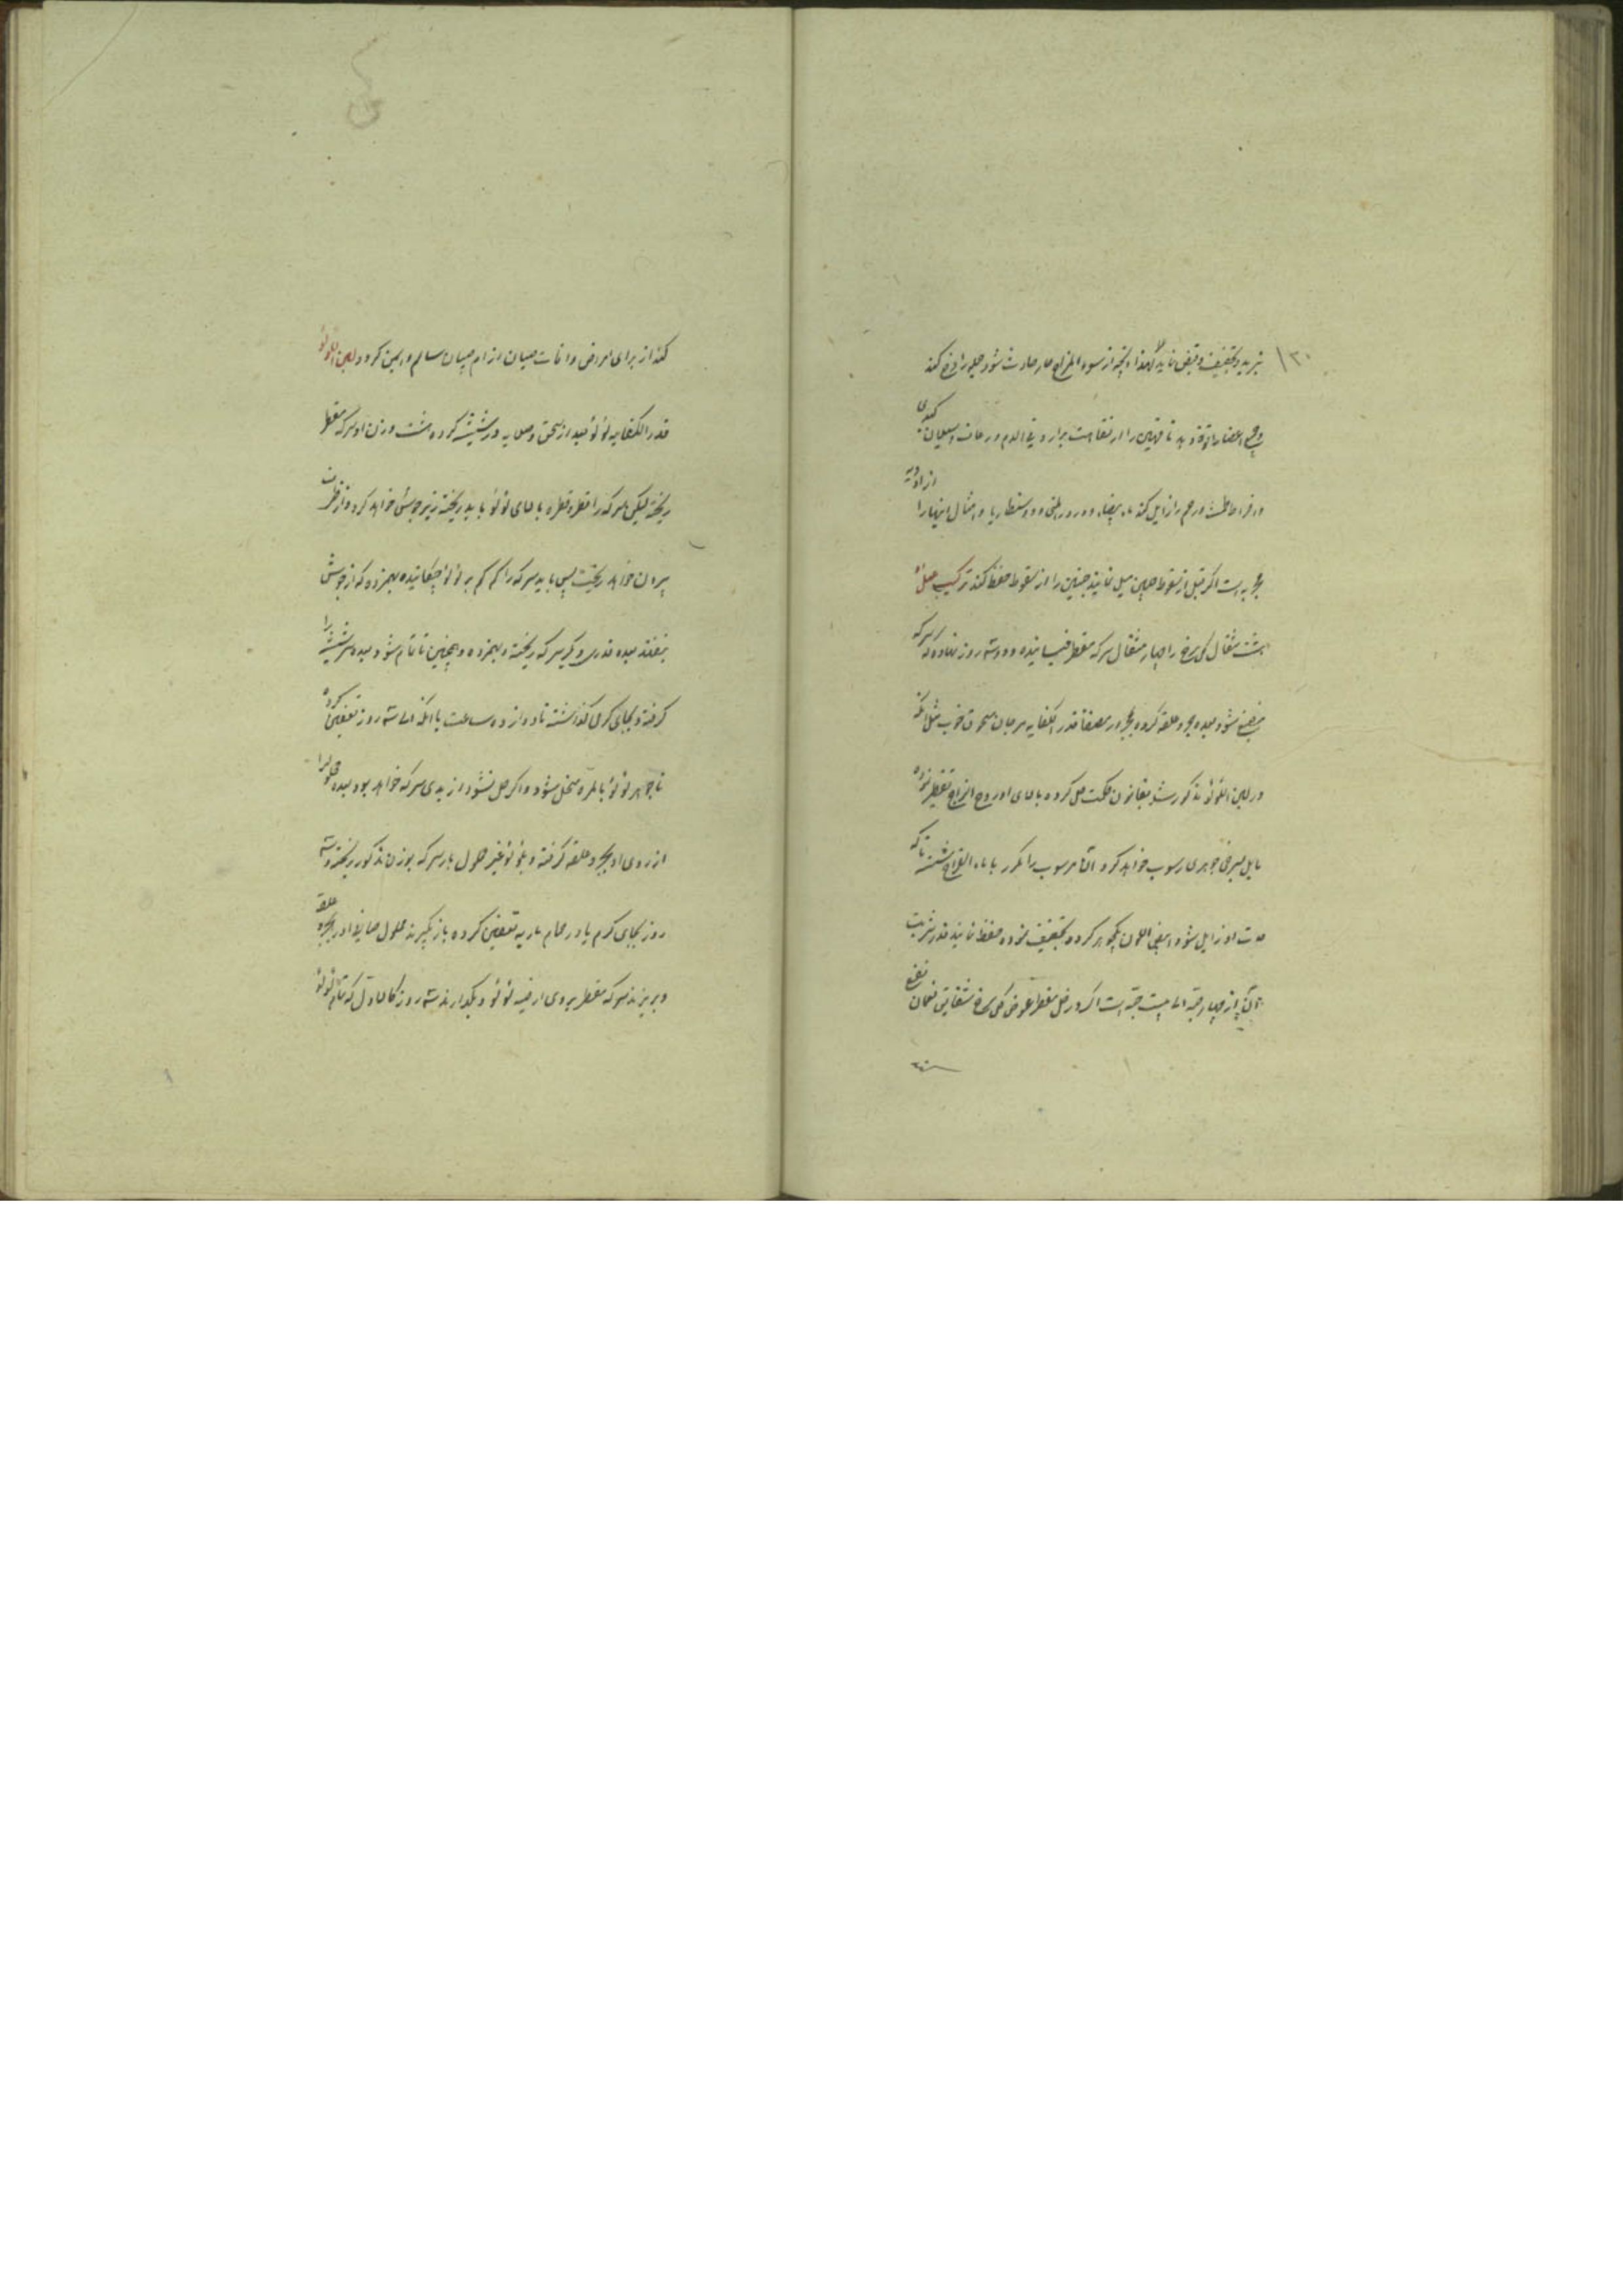 ۱۳۰
تبرید و تجفیف و قبض نماید لهذا آنچه از سوء المزاج حار حادث شود جمله را دفع کند
و جمیع اعضا را قوة دهد ناقهین را از نقاهت برارد و نفث الدم و رعاف و سیلان کبدی
و افراط طمث و رحم را زایل کند ماء بیضاء و درور المنی و دوسنطاریا و امثال اینها را از ادویه
مجربه است اگر قبل از سقوط جنین میل نمایند جنین را از سقوط حفظ کند ترکیب عمل او
هشت مثقال گل سرخ را چهار مثقال سرکه مقطر خیسانیده و دو سه روز نهاده که سرکه
منصبغ شود بعده بجر و علقه کرده بگیر در مصفا قدر الکفایه مرجان مسحوق خوب مثل آنکه
در لبن اللؤلؤ مذکور شد بقانون حکمت حل کرده بالای او روح الزاج تقطیر نموده
مایل بسرخی جوهری رسوب خواهد کرد آن رسوب را مکرر با ماء القراح شسته تا که
حدت او زایل شود ابیض اللون یک جوهر گردد تجفیف نموده حفظ نمایند قدر شربت
آن از چهار حبه الی بیست حبه است اگر در خل مقطر عوض گل سرخ شقایق نعمان نقع
کند از برای امراض و افات صبیان از ام صبیان سالم و ایمن گردد لبن اللؤلؤ
قدر الکفایه لؤلؤ بعد از سحق و صلایه در شیشه کرده هشت وزن او سرکه مقطر
ریخته لیکن سرکه را قطره قطره بالای لؤلؤ باید ریخته زیر جوشی خواهد کرد و از ظرف
بیرون خواهد ریخت پس باید سرکه را کم کم بر لؤلؤ چکانیده بهمزده که از جوش
بیفتد بعده قدری دیگر سرکه ریخته و بهمزده و همچنین تا تمام شود بعده سر شیشه را
گرفته و بجای گرمی گذاشته تا دوازده ساعت یا آنکه الی سه روز تعفین کرده
تا جوهر لؤلؤ بالمره منحل شود و اگر حل نشود از بدی سرکه خواهد بود بعده محلول را
از روی او بجر و علقه گرفته و بلؤلؤ غیر محلول باز سرکه بوزن مذکور ریخته و سه
روز بجای گرم یا در حمام ماریه تعفین کرده باز بگیرند محلول صافی او را بجر و علقه
و بریزند سرکه مقطر بروی ارضیه لؤلؤ و بگذارند سه روز کالاول که تمام لؤلؤ